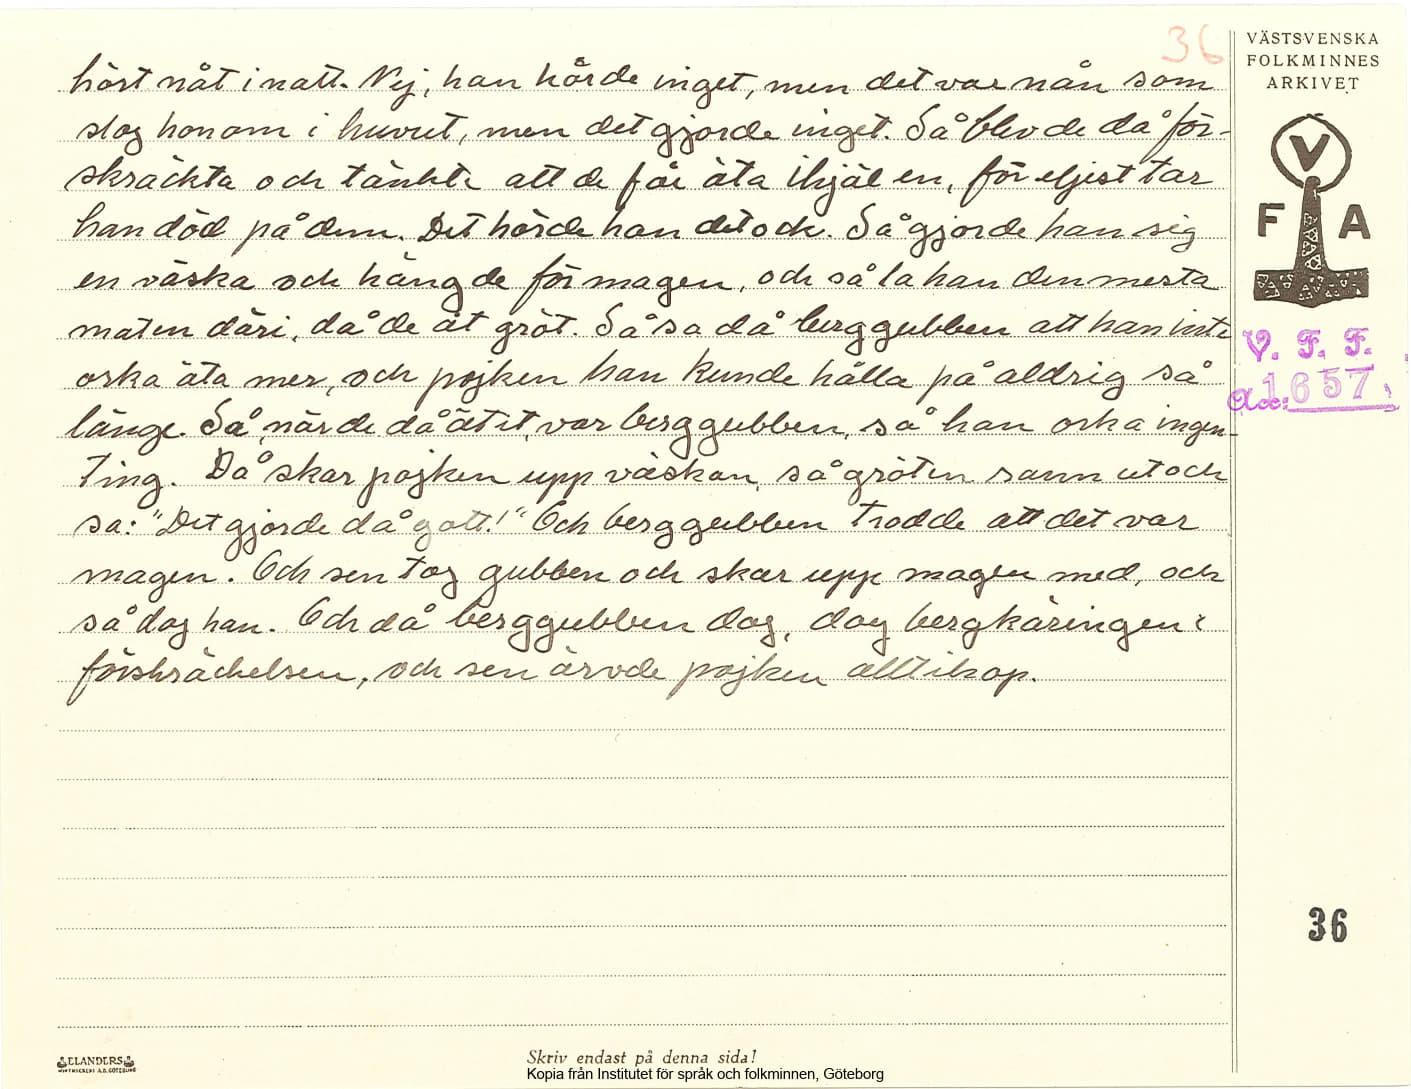 36
hört nåt i natt. Nej, han hörde inget, men det var nån som
slog honom i huvut, men det gjorde inget. Så blev de då för-
skräckta och tänkte att de får äta ihjäl en, för eljest tar
han död på dem. Det hörde han det ock. Så gjorde han sig
en väska och hängde för magen, och så la han den mesta
maten däri, då de åt gröt. Så sa då berggubben att han inte
orka äta mer, och pojken han kunde hålla på aldrig så
länge. Så, när de då ätit, var berggubben, så han orka ingen-
ting. Då skar pojken upp väskan, så gröten rann ut och
sa: "Det gjorde då gott!" Och berggubben trodde att det var
magen. Och sen tog gubben och skar upp magen med, och
så dog han. Och då berggubben dog, dog bergkäringen i
förskräckelsen, och sen ärvde pojken alltihop.
VÄSTSVENSKA
FOLKMINNES
ARKIVET
V
F A
V. F. F.
Acc: 1657.
36
ELANDERS
Skriv endast på denna sida!
Kopia från Institutet för språk och folkminnen, Göteborg